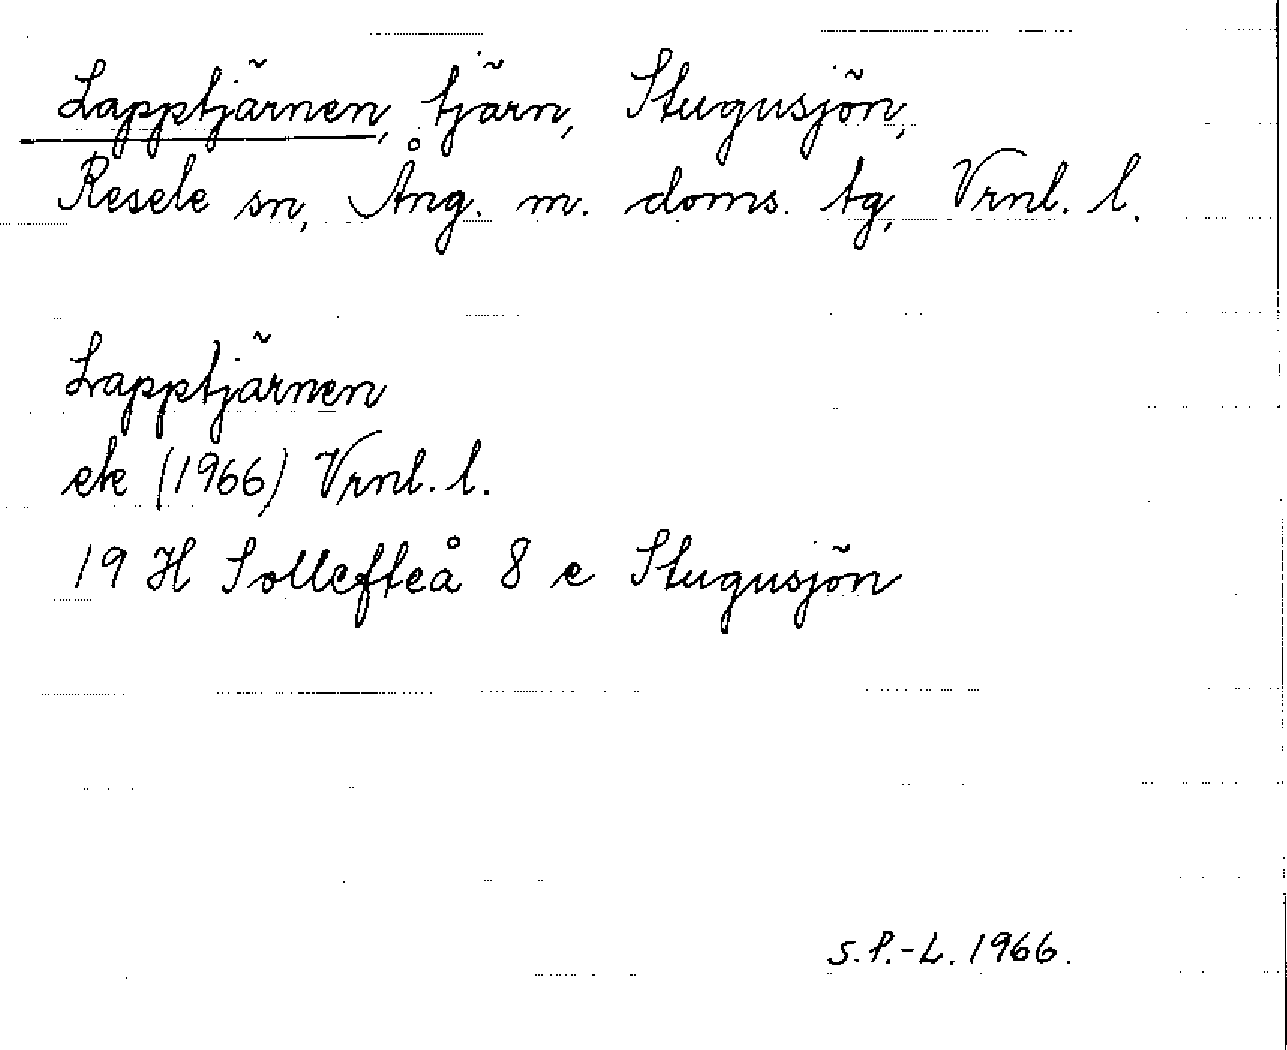 Lapptjärnen, tjärn, Stugusjön,
Resele sn, Ång. m. doms. tg, Vrnl. l.
Lapptjärnen
ek (1966) Vrnl. l.
19 H Sollefteå 8 e Stugusjön
S.P.-L. 1966.